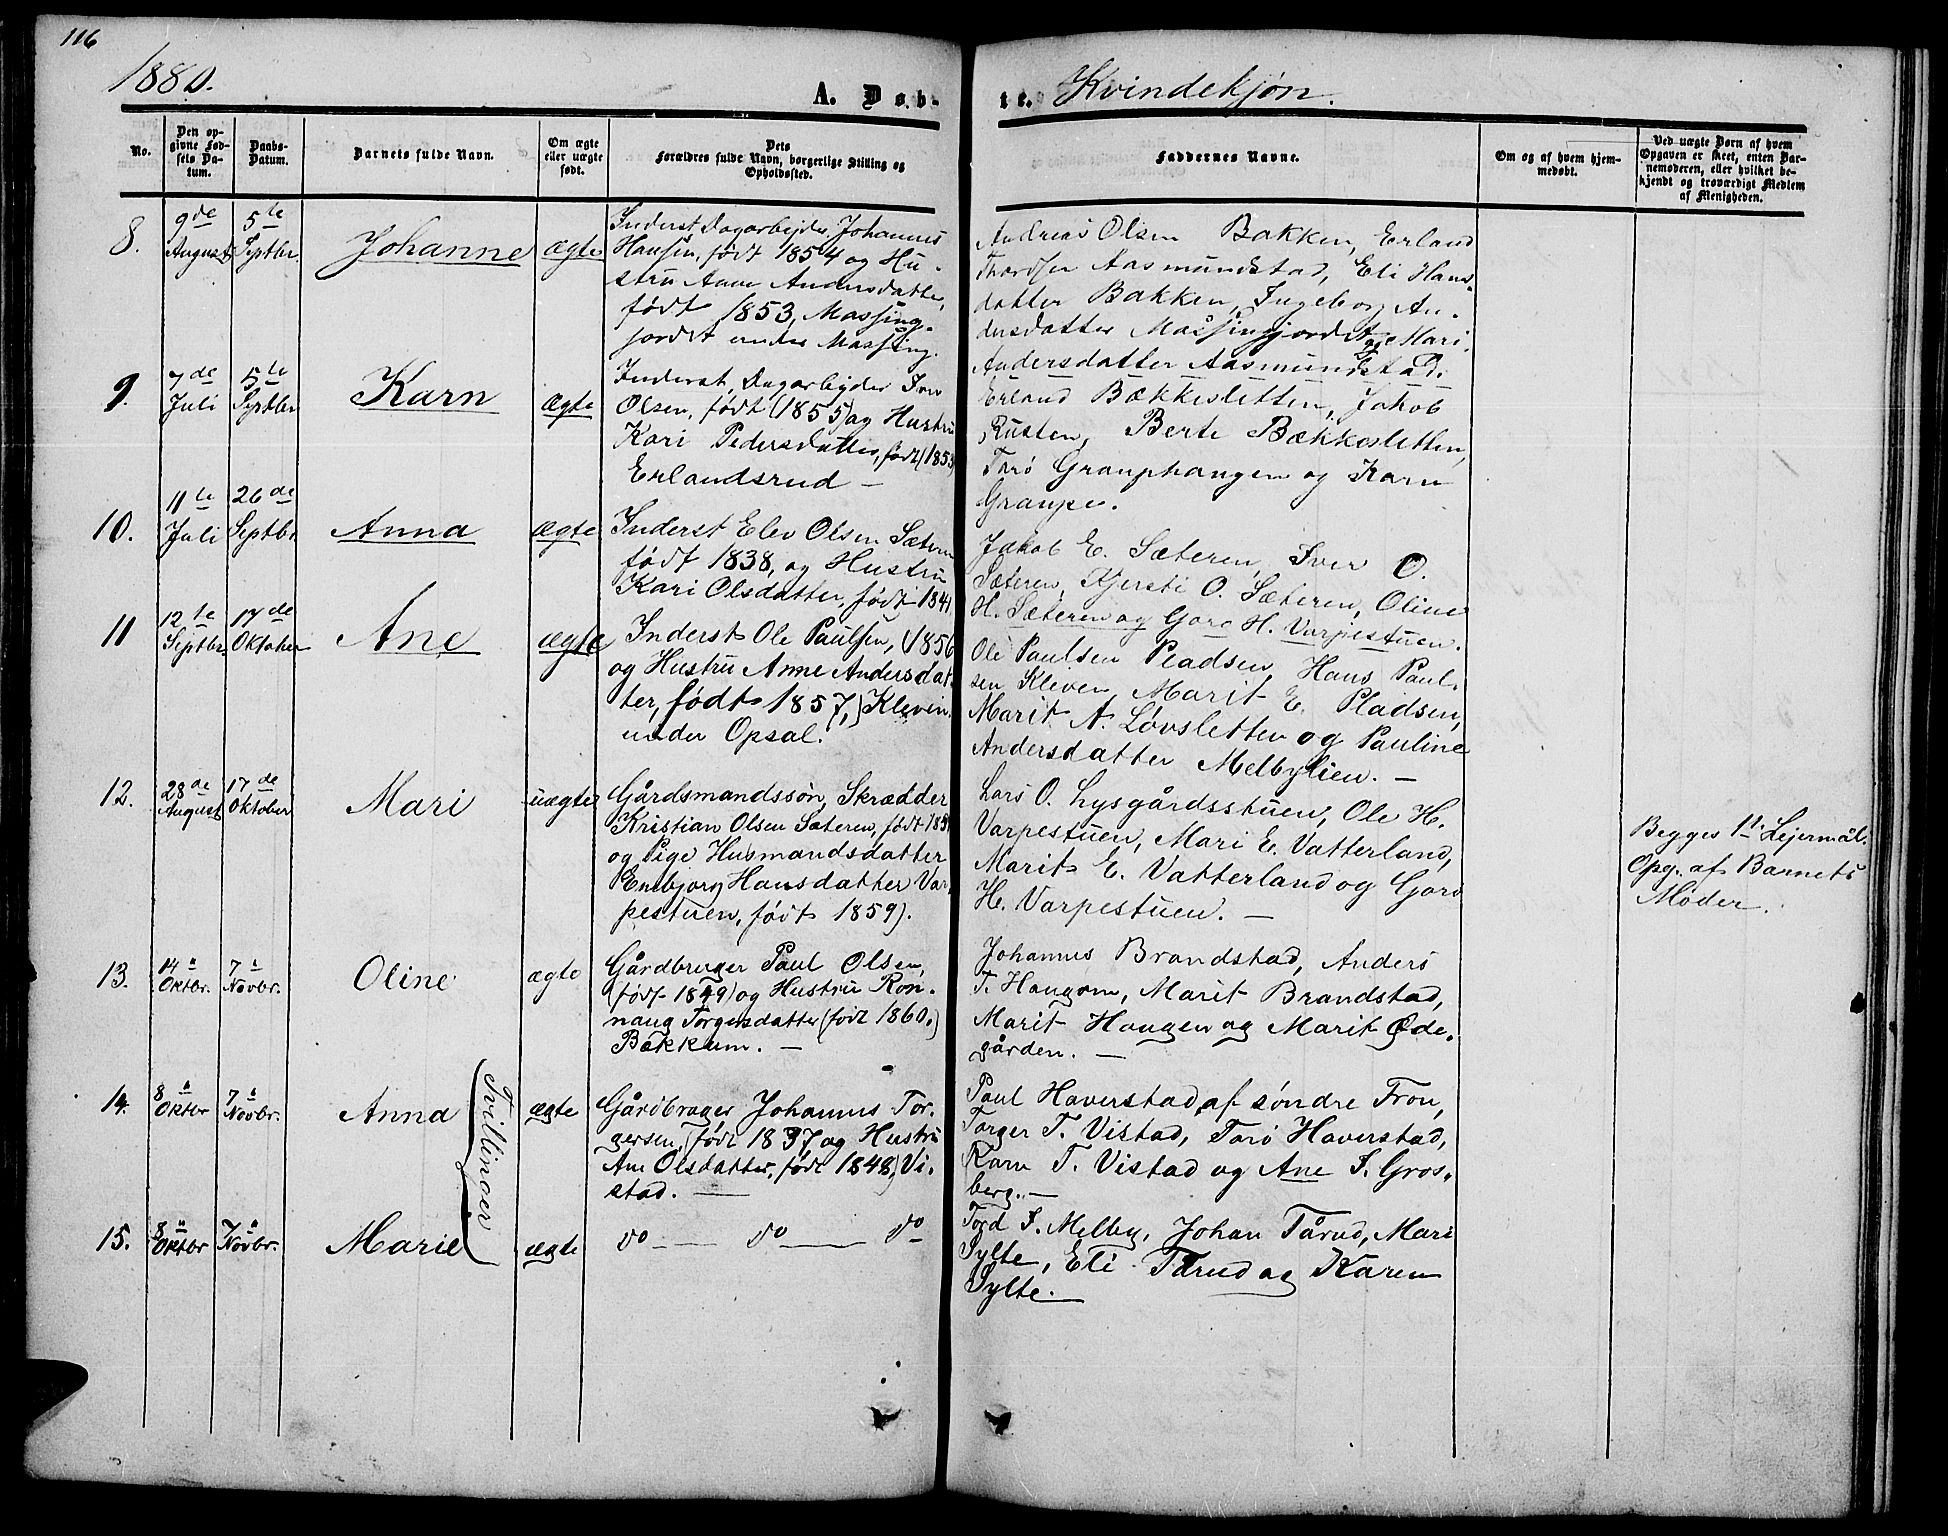 116
1880.
A. Døb-
te. Kvindekjøn.
No.
Den op-
givne Fød-
sels Da-
tum.
Daabs-
Datum.
Barnets fulde Navn.
Om ægte
eller uægte
født.
Dets
Forældres fulde Navn, borgerlige Stilling og
Opholdssted.
Faddernes Navne.
Om og af hvem hjem-
medøbt.
Ved uægte Børn af hvem
Opgaven er skeet, enten Bar-
nemoderen, eller hvilket be-
kjendt og troværdigt Medlem
af Menigheden.
8.
9de
August
5te
Septbr.
Johanne
ægte
Inderst Dagarbejder Johannes
Hansen, født 1854 og Hu-
stru Anne Andersdatter,
født 1853, Massing-
jordet under Massing.
Andreas Olsen Bakken, Erland
Thordsen Aasmundstad, Eli Hans-
datter Bakken, Ingeborg An-
dersdatter Massingjordet og Mari
Andersdatter Aasmundstad.
9.
7de
Juli
5te
Septbr
Karn
ægte
Inderst, Dagarbejder Iver
Olsen, født (1855) og Hustru
Kari Pedersdatter, født (1853)
Erlandsrud —
Erland Bækkesletten, Jakob
Rusten, Berte Bækkesletten,
Tarø Grauphaugen og Karn
Graupe.
10.
11te
Juli
26de
Septbr
Anna
ægte
Inderst Elev Olsen Sæteren
født 1838, og Hustru
Kari Olsdatter, født 1841
Jakob E. Sæteren, Iver O.
Sæteren, Kjersti O. Sæteren, Oline
H. Sæteren og Goro H. Varpestuen.
11
12te
Septbr.
17de
Oktober
Ane
ægte
Inderst Ole Paulsen, (1856
og Hustru Anne Andersdat-
ter, født 1857,) Kleven
under Opsal.
Ole Paulsen Pladsen, Hans Paul-
sen Kleven, Marit E. Pladsen,
Marit A. Løvsletten og Pauline
Andersdatter Melbylien. —
12.
28de
August
17de
Oktober
Mari
uægte
Gårdsmandssøn, Skrædder
Kristian Olsen Sæteren, født 185
og Pige Husmandsdatter
Embjorg Hansdatter Var-
pestuen, født 1859).
Lars O. Lysgårdsstuen, Ole H.
Varpestuen, Mari E. Vatterland,
Marit E. Vatterland og Goro
H. Varpestuen. —
Begges 1ste Lejermål.
Opg. af Barnets
Moder.
13.
14"
Oktbr.
7"
Novbr.
Oline
ægte
Gårdbruger Paul Olsen,
(født 1849) og Hustru Ron-
naug Torgersdatter (født 1860.)
Bakkum. —
Johannes Brandstad, Anders
T. Haugom, Marit Brandstad,
Marit Haugen og Marit Øde-
gården. —
14.
8"
Oktbr
7"
Novbr.
Anna
Tvillinger
ægte
Gårdbruger Johannes Tor-
gersen, (født 1837 og Hustru
Ane Olsdatter, født 1848,) Vi-
stad. —
Paul Haverstad af søndre Fron,
Torger T. Vistad, Tarø Haverstad,
Karn T. Vistad og Ane I. Gros-
berg. —
15.
8"
Oktbr
7"
Novbr.
Marie
ægte
do — do — do
Tord I. Melby, Johan Tårud, Mari
Sylte, Eli Tårud og Karen
Sylte. —